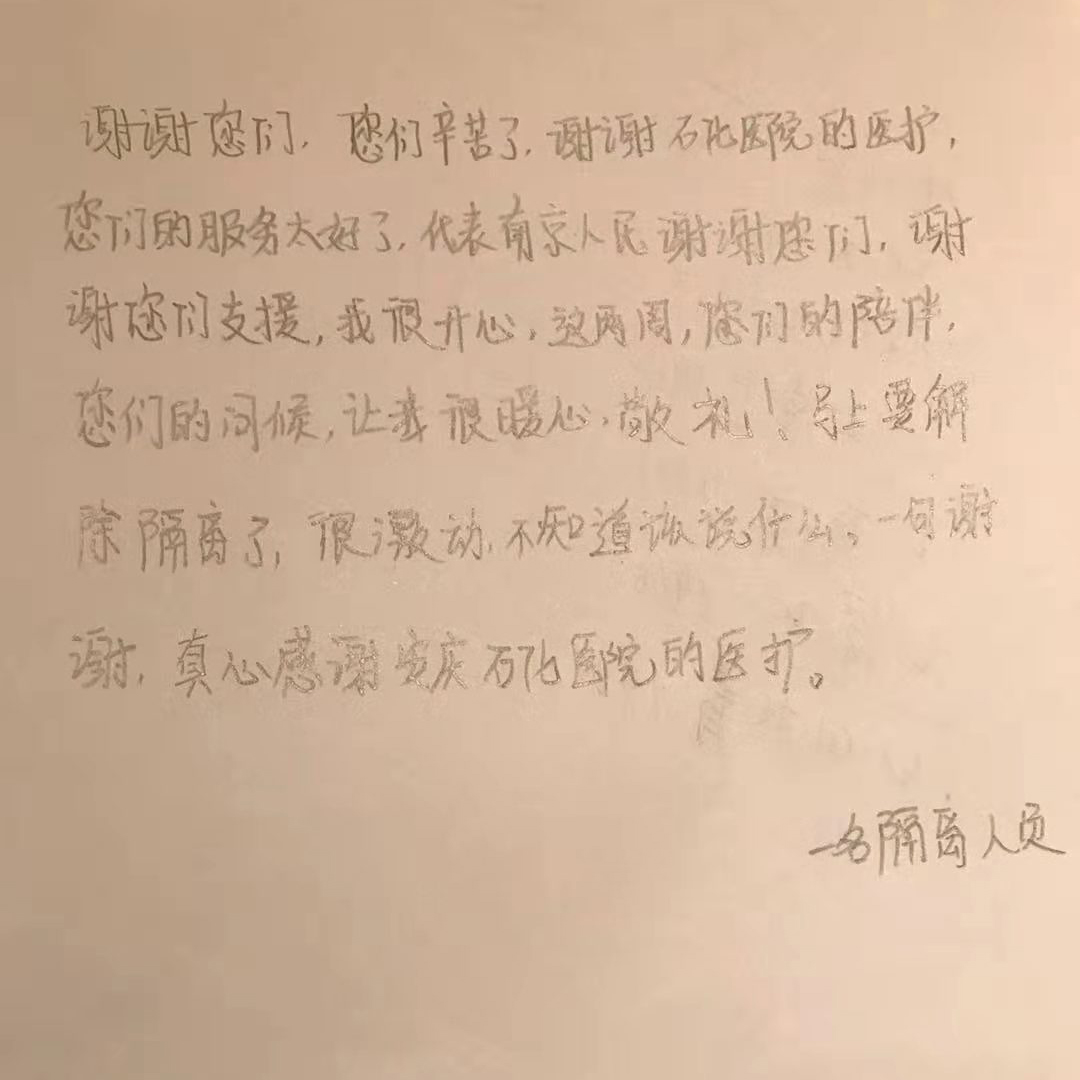 谢谢您们，您们辛苦了，谢谢石化医院的医护，
您们的服务太好了，代表南京人民谢谢您们，谢
谢您们支援，我很开心，这两周，您们的陪伴，
您们的问候，让我很暖心，敬礼！马上要解
除隔离了，很激动，不知道该说什么，一句谢
谢，真心感谢安庆石化医院的医护。
一名隔离人员